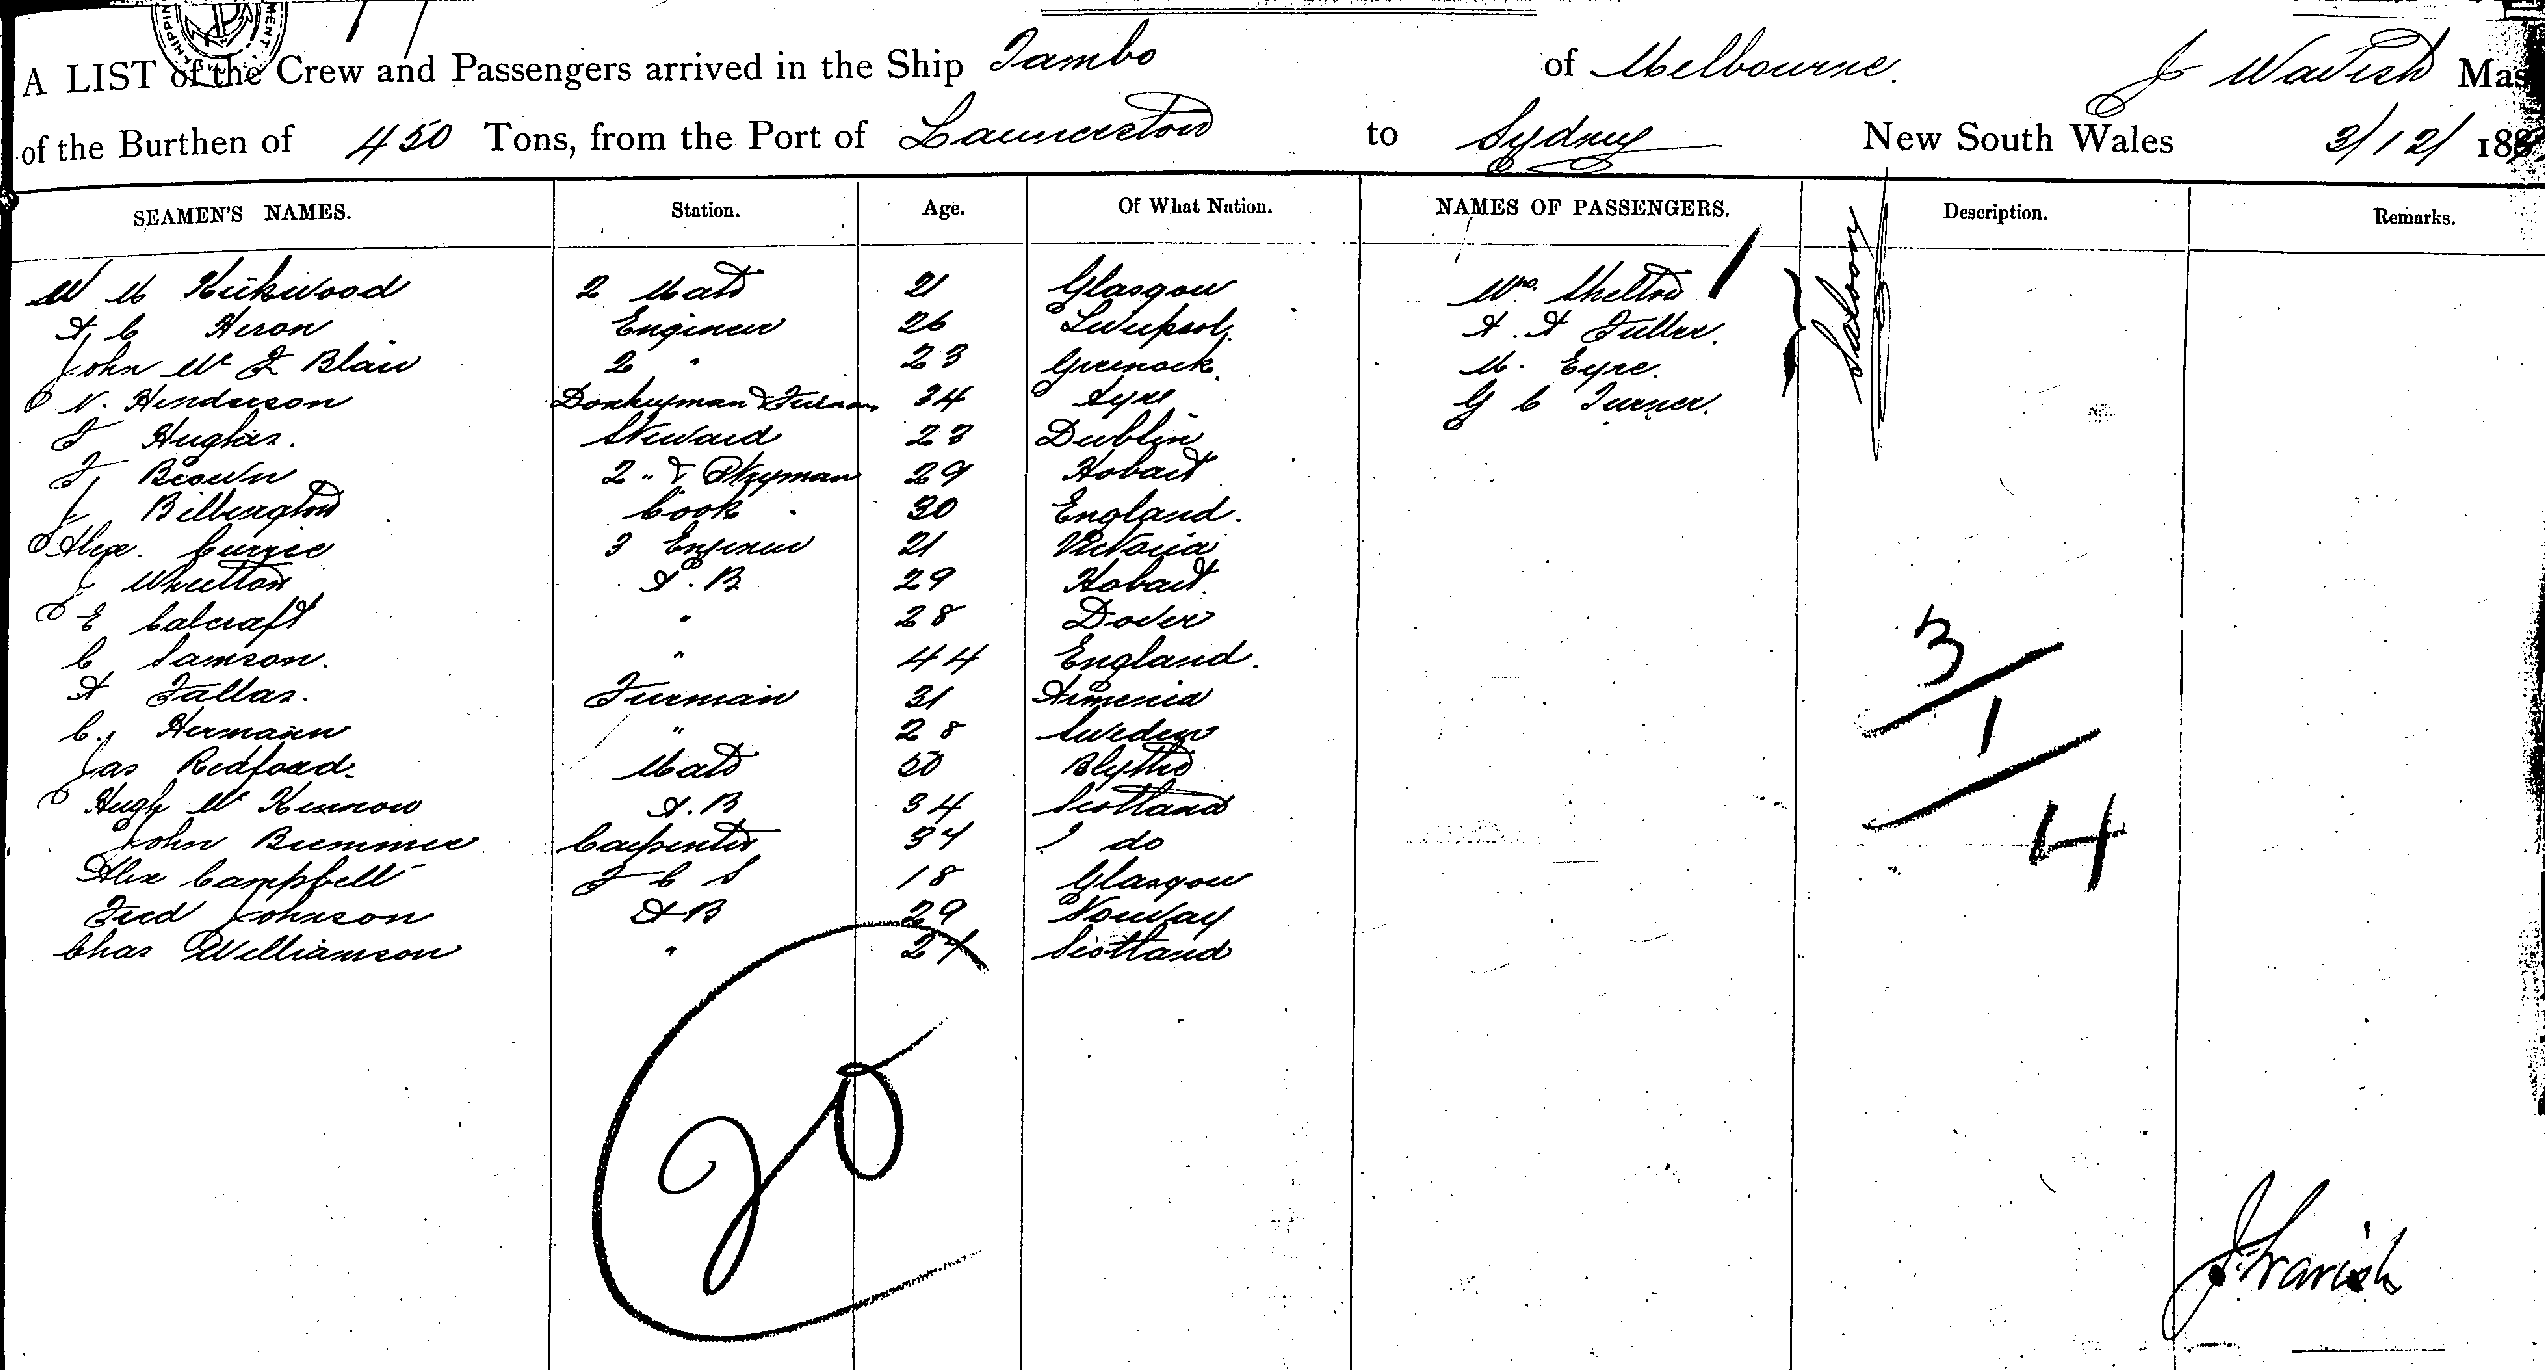 A LIST of the Crew and Passengers arrived in the Ship Tambo of Melbourne. J Wavish Mas
of the Burthen of 450 Tons, from the Port of Launceston to Sydney New South Wales 3/12/ 188
SEAMEN'S NAMES. Station. Age. Of What Nation. NAMES OF PASSENGERS. Description. Remarks.
W M Kirkwood 2 Mate 21 Glasgow Mrs. Shelton
A C Heron Engineer 26 Liverpool. A. A Fuller.
John Mc F Blair 2 " 23 Greenock. M. Eyre.
N. Henderson Donkeyman & Fireman 34 Ayre G C Turner.
Saloon
J Hughes. Steward 23 Dublin
J Brown 2 " & Stryman 29 Hobart
J Billington Cook 30 England.
Alex. Currie 3 Engineer 21 Victoria
J Wheetton A.B 29 Hobart.
E Calcraft " 28 Dover
C Samson. " 44 England.
A Fallas. Fireman 31 Armenia
C. Hermann " 28 Sweden
Jas Redford. Mate 50 Blythe
Hugh Mc Kinnon A.B 34 Scotland
John Bremmer Carpenter 34 do
Alex Campbell F C S 18 Glasgow
Fred Johnson AB 29 Norway
Chas Williamson " 24 Scotland
3
1
4
20
J Wavish